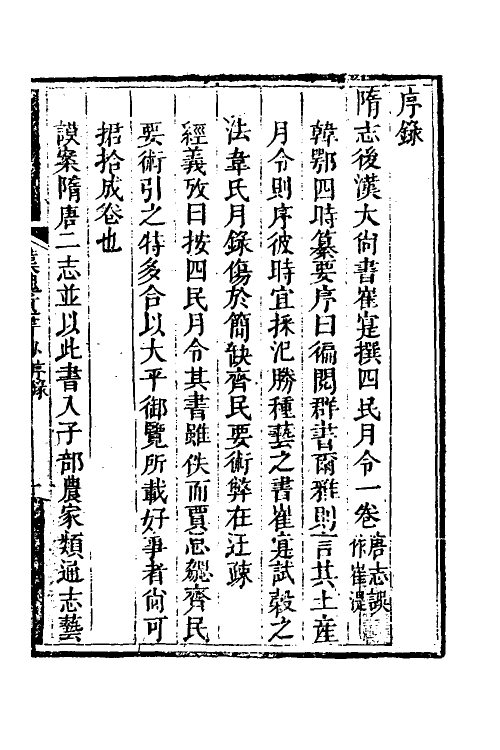 序錄
隋志後漢大尙書崔寔撰四民月令一卷唐志誤作崔湜
韓鄂四時纂要序曰徧閱群書爾雅則言其土産
月令則序彼時宜採氾勝種藝之書崔寔試穀之
法韋氏月錄傷於簡缺齊民要術弊在迂疎
經義攷曰按四民月令其書雖佚而賈思勰齊民
要術引之特多合以大平御覽所載好事者尙可
捃拾成卷也
謨案隋唐二志並以此書入子部農家類通志藝
序錄